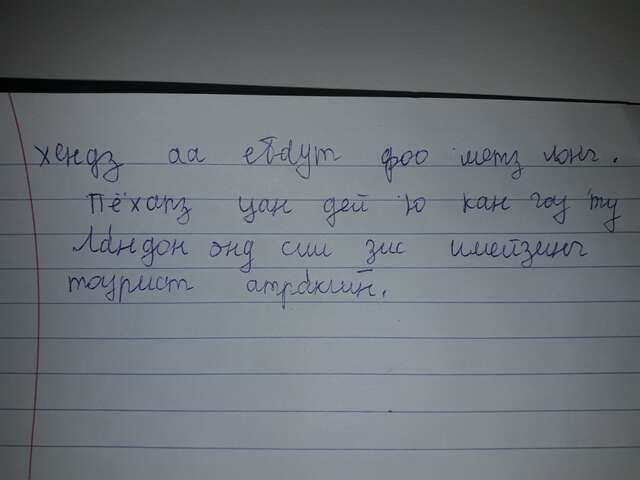 хендз аа ебаут фоо метз лонг.
Пёхапз цан дей ю кан гоу ту
Ландон энд сии зис имейзинг
тоурист атракшн.